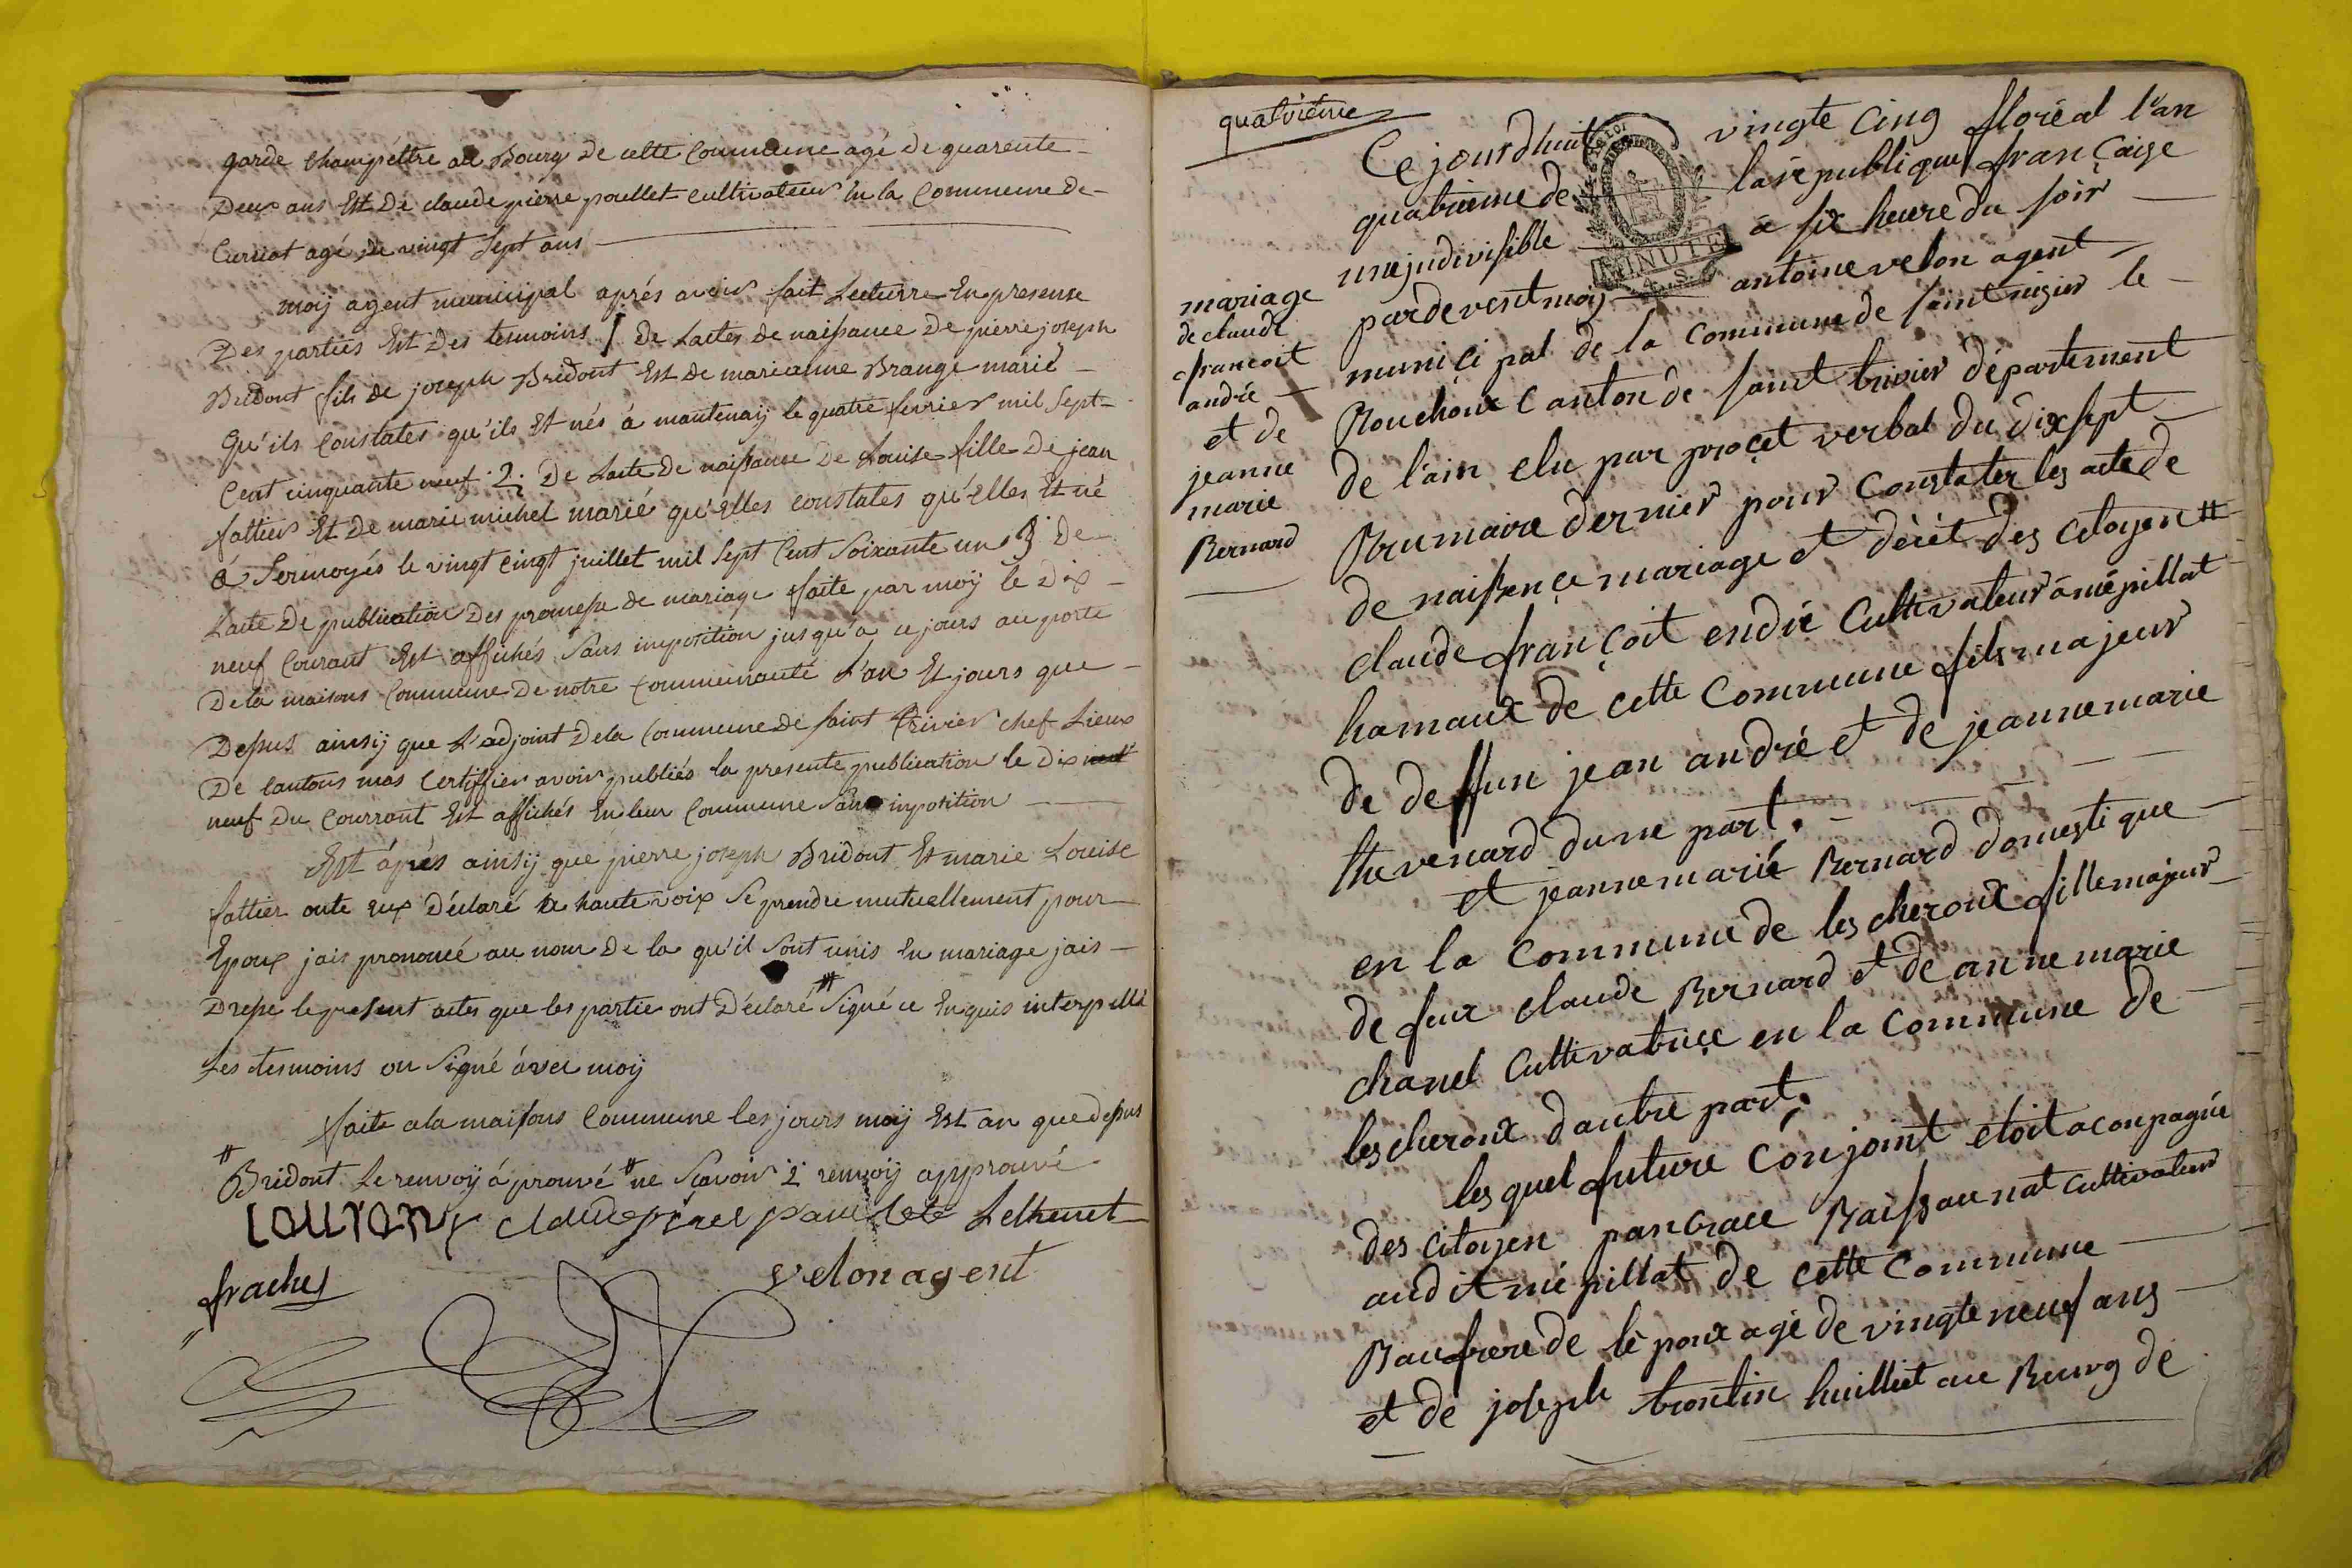 garde champêttre au Bourg De cette Commune agé de quarente
Deux ans Est De claude pierre poullet cultivateur En la Commune De
Curciat agé de vingt Sept ans
moij agent municipal aprés avoir fait Lecturre En presense
Des parties Est Des temoins 1 De Lactes de naissance De pierre joseph
Bridont fils de joseph Bridont Est De marianne Brange marié
Qu'ils constates qu'ils Et nés á mantenaij le quatre fevrier mil Sept
Cent cinquante neuf 2: De Lacte De naissance De Louise fille De jean
fattier Et De marie michel marié qu'elles constates qu'elles Et né
á Sermoyés le vingt cingt juillet mil Sept Cent Soixante un 3 De
Lacte De publication Des promesse de mariage faite par moij le Dix
neuf Courant Est affichés Sans imposition jusqu'a ce jours au porte
De la maisons Commune De notre Communauté L'an Et jours que
Depus ainsij que L'adjoint De la Commune De saint trivier chef Lieux
De cantons mas certiffier avoir publiés la presente publication le Dix neuf
neuf Du Courront Est affichés En leur Commune Sans inposition
Est áprés ainsij que pierre joseph Bridont Et marie Louise
fattier onte eux Déclaré a haute voix Se prendre mutuellement pour
Epoux jais prononcé au nom De la qu'il Sont unis En mariage jais
Dresse le present actes que les partie ont Déclaré # Signé ce Enquis interpellé
Les temoins on Signé ávec moij
faite a la maisons Commune les jours moij Est an que depus
# Bridont Le renvoij á prouvé # ne Scavoir 2 renvoij approuvé
Louvrony claude piael paulete Lethenet
frachey velon agent
quatriéme
Ce jourdhuit vingte Cinq floréal l'an
quatrieme de la république française
une judivisible à six heure du soir
pardevent moij antoine velon agent
mariage
de claude
francoit
andré
et de
jeanne
marie
Bernard
muniçi pal de la commune de saint nizier le
Bouchoux Canton de saint trivier département
de l'ain elu par proçet verbal du dix sept
Brumaire dernier pour Constater les acte de
de naissençe mariage et dècèt des citoyen #
claude françoit endré Cultivateur á mépillat
hamaux de cette Commune fils majeur
de deffun jean andré et de jeanne marie
thevenard dune part.
et jeanne marié Bernard domestique
en la Commune de lescheroux fille majeur
de feux claude Bernard et de anne marie
chanel Cultivatriçe en la Commune de
lescheroux dautre part.
les quel future Cónjoint etoit aconpagnée
des citoyen pancrace Raissounat Cultivateur
audit mépillat de cette Commune
Baufrere de lèpoux agé de vingte neuf ans
et de joseph trontin huilliet au Burg de